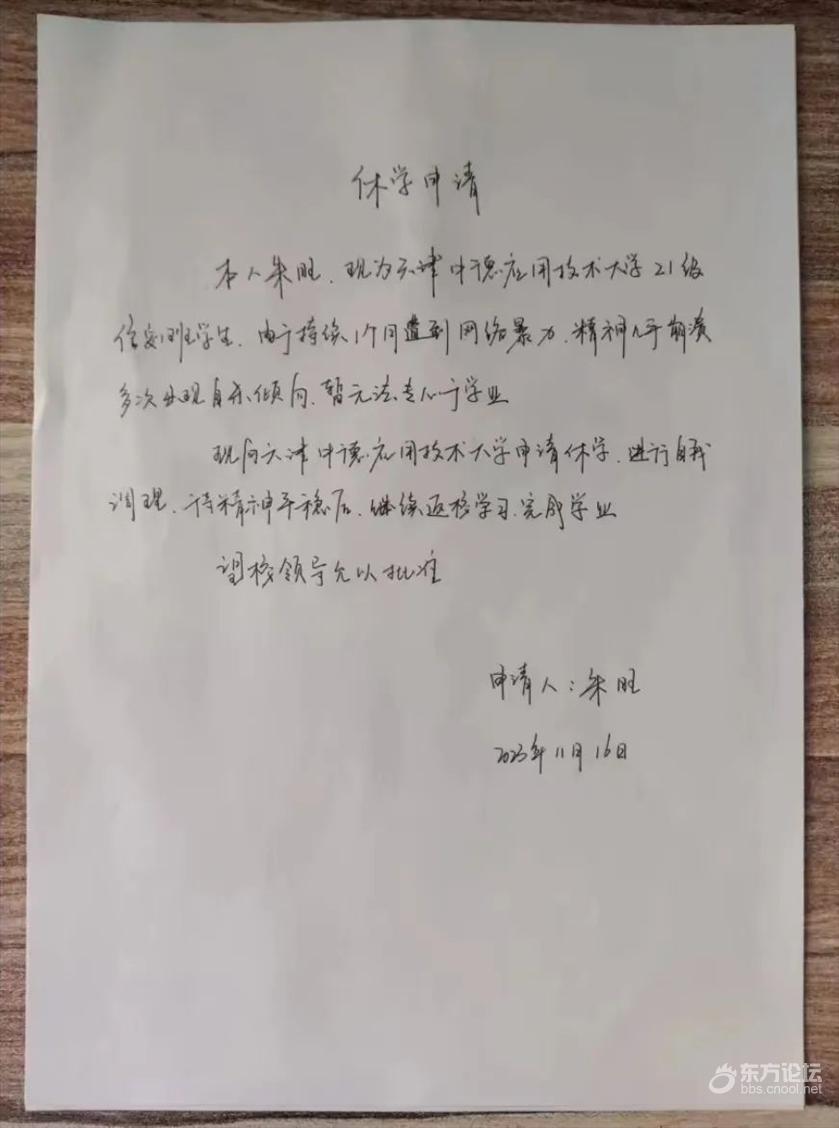 休学申请
本人朱旺、现为天津中德应用技术大学21级
信安班学生、由于持续1个月遭到网络暴力、精神几乎崩溃
多次出现自杀倾向、暂无法专心于学业
现向天津中德应用技术大学申请休学、进行自我
调理、待精神平稳后、继续返校学习、完成学业
望校领导允以批准
申请人：朱旺
2023年11月16日
东方论坛
bbs.cnool.net